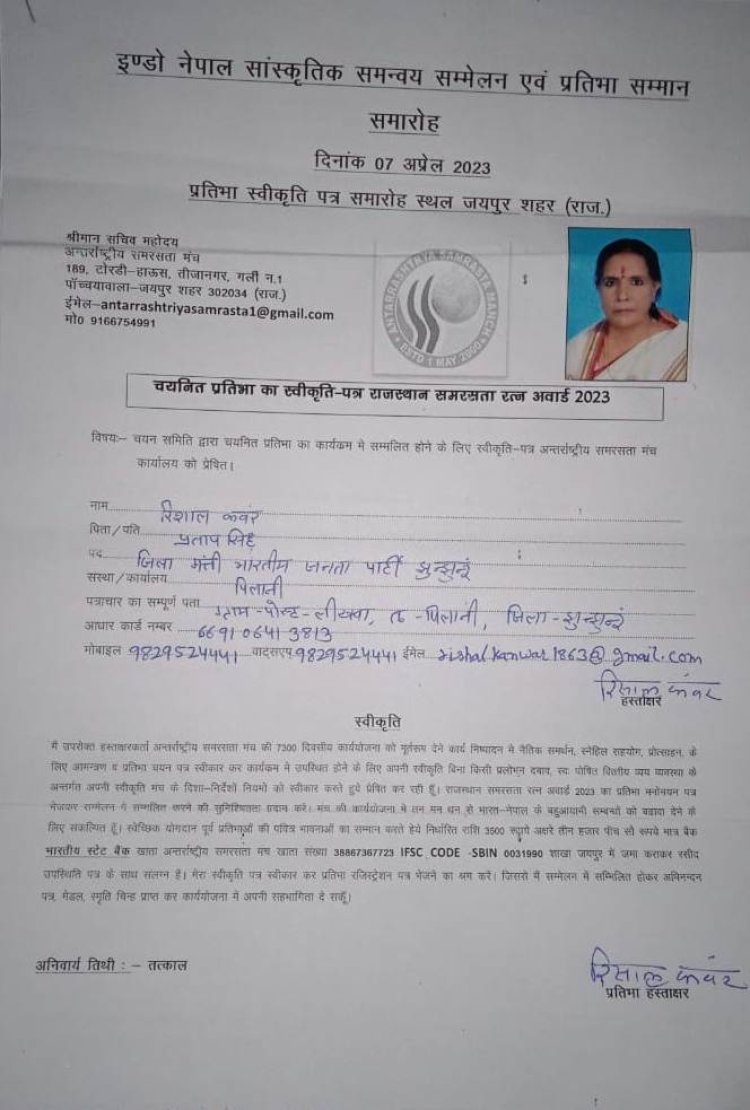 इण्डो नेपाल सांस्कृतिक समन्वय सम्मेलन एवं प्रतिभा सम्मान
समारोह
दिनांक 07 अप्रेल 2023
प्रतिभा स्वीकृति पत्र समारोह स्थल जयपुर शहर (राज.)
श्रीमान सचिव महोदय
अन्तर्राष्ट्रीय समरसता मंच
189, टोरडी-हाऊस, तीजानगर, गली न.1
पॉच्यावाला-जयपुर शहर 302034 (राज.)
ईमेल-antarrashtriyasamrasta1@gmail.com
मो0 9166754991
ANTARRASHTRIYA SAMRASTA MANCH
ESTD 1 MAY 2000
चयनित प्रतिभा का स्वीकृति-पत्र राजस्थान समरसता रत्न अवार्ड 2023
विषयः- चयन समिति द्वारा चयनित प्रतिभा का कार्यकम मे सम्मलित होने के लिए स्वीकृति-पत्र अन्तर्राष्ट्रीय समरसता मंच
कार्यालय को प्रेषित।
नाम रिशाल कवर
पिता/पति प्रताप सिंह
पद जिला मंत्री भारतीम जनता पार्टी झुन्झुनूं
संस्था/कार्यालय पिलानी
पत्राचार का सम्पूर्ण पता ग्राम-पोस्ट-लीखवा, त-पिलानी, जिला-झुन्झुनूं
आधार कार्ड नम्बर 6691 0641 3813
मोबाइल 9829524441 वाट्सएप 9829524441 ईमेल rishalkanwar1863@gmail.com
रिसाल कंवर
हस्ताक्षर
स्वीकृति
मैं उपरोक्त हस्ताक्षरकर्ता अन्तर्राष्ट्रीय समरसता मंच की 7300 दिवसीय कार्ययोजना को मूर्तरूप देने कार्य निष्पादन मे नैतिक समर्थन, स्नेहिल सहयोग, प्रोत्साहन, के
लिए आमन्त्रण व प्रतिभा चयन पत्र स्वीकार कर कार्यकम मे उपस्थित होने के लिए अपनी स्वीकृति बिना किसी प्रलोभन दबाव, स्व पोषित वित्तीय व्यय व्यवस्था के
अन्तर्गत अपनी स्वीकृति मंच के दिशा-निर्देशों नियमो को स्वीकार करते हुये प्रेषित कर रही हूँ। राजस्थान समरसता रत्न अवार्ड 2023 का प्रतिभा मनोनयन पत्र
भेजकर सम्मेलन मे सम्मलित करने की सुनिश्चितता प्रदान करे। मंच की कार्ययोजना मे तन मन धन से भारत-नेपाल के बहुआयामी सम्बन्धों को बढावा देने के
लिए संकल्पित हूँ। स्वेच्छिक योगदान पूर्व प्रतिभाओं की पवित्र भावनाओं का सम्मान करते हुये निर्धारित राशि 3500 रूपये अक्षरे तीन हजार पॉच सौ रूपये मात्र बैंक
भारतीय स्टेट बैंक खाता अन्तर्राष्ट्रीय समरसता मंच खाता संख्या 38867367723 IFSC CODE -SBIN 0031990 शाखा जयपुर में जमा कराकर रसीद
उपस्थिति पत्र के साथ संलग्न है। मेरा स्वीकृति पत्र स्वीकार कर प्रतिभा रजिस्ट्रेशन पत्र भेजने का श्रम करें। जिससे मैं सम्मेलन में सम्मिलित होकर अभिनन्दन
पत्र, मेडल, स्मृति चिन्ह प्राप्त कर कार्ययोजना में अपनी सहभागिता दे सकूँ।
अनिवार्य तिथी : - तत्काल
रिसाल कंवर
प्रतिभा हस्ताक्षर